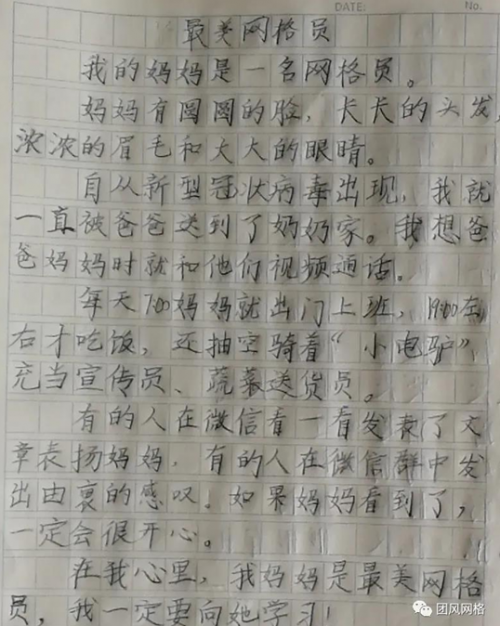 DATE: No.
最美网格员
我的妈妈是一名网格员。
妈妈有圆圆的脸，长长的头发，
浓浓的眉毛和大大的眼睛。
自从新型冠状病毒出现，我就
一直被爸爸送到了奶奶家。我想爸
爸妈妈时就和他们视频通话。
每天7:00妈妈就出门上班，19:00左
右才吃饭，还抽空骑着“小电驴”
充当宣传员、蔬菜送货员。
有的人在微信看一看发表了文
章表扬妈妈，有的人在微信群中发
出由衷的感叹。如果妈妈看到了，
一定会很开心。
在我心里，我妈妈是最美网格
员，我一定要向她学习！
团风网格